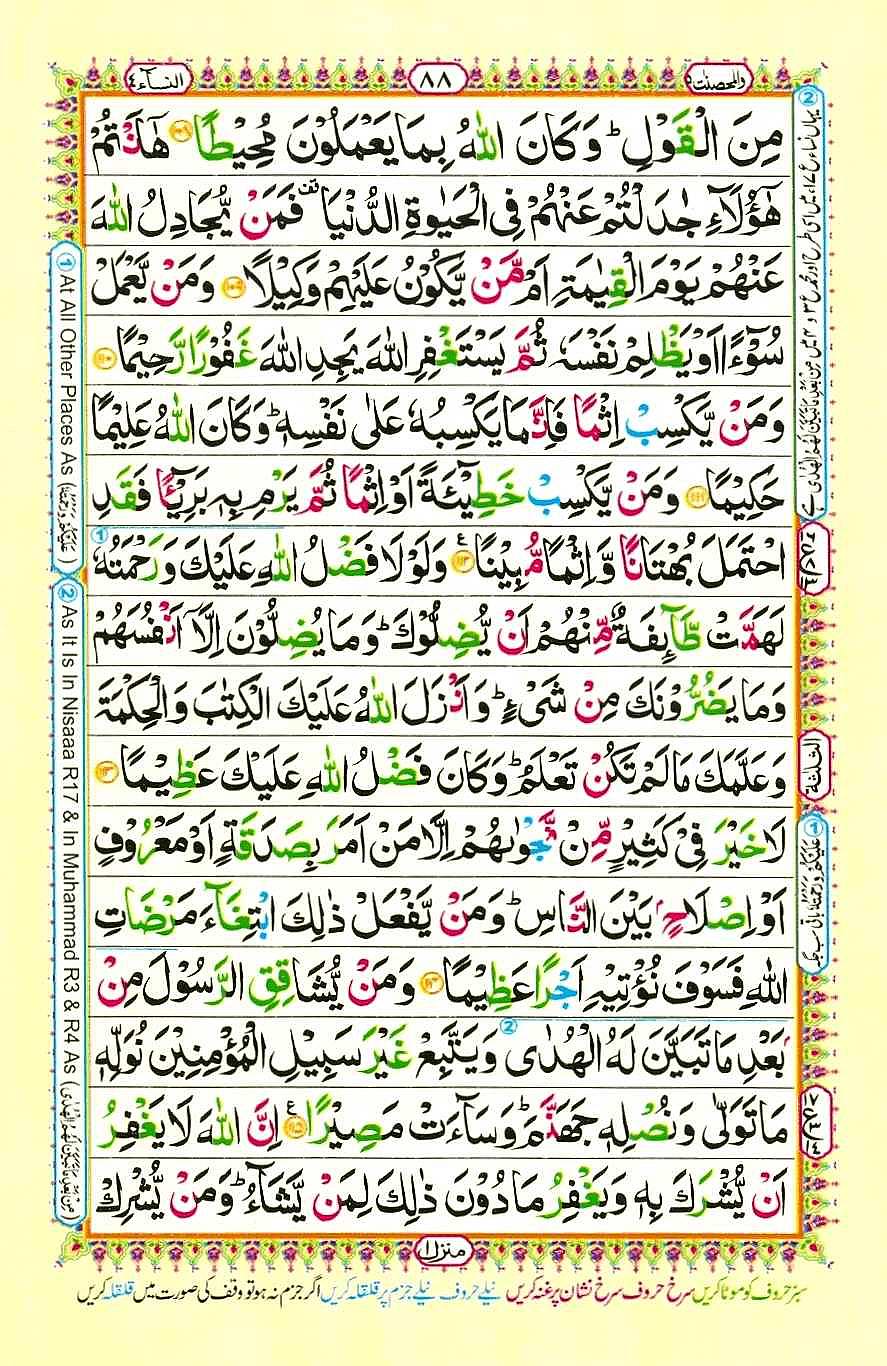 والمحصنت ٥
٨٨
النساء ٤
مِنَ الْقَوْلِ ؕ وَكَانَ اللّٰهُ بِمَا يَعْمَلُوْنَ مُحِيْطًا ﴿۱۰۸﴾ هٰۤاَنْتُمْ
هٰۤؤُلَآءِ جٰدَلْتُمْ عَنْهُمْ فِى الْحَيٰوةِ الدُّنْيَا ۥ فَمَنْ يُّجَادِلُ اللّٰهَ
عَنْهُمْ يَوْمَ الْقِيٰمَةِ اَمْ مَّنْ يَّكُوْنُ عَلَيْهِمْ وَكِيْلًا ﴿۱۰۹﴾ وَمَنْ يَّعْمَلْ
سُوْٓءًا اَوْ يَظْلِمْ نَفْسَهٗ ثُمَّ يَسْتَغْفِرِ اللّٰهَ يَجِدِ اللّٰهَ غَفُوْرًا رَّحِيْمًا ﴿۱۱۰﴾
وَمَنْ يَّكْسِبْ اِثْمًا فَاِنَّمَا يَكْسِبُهٗ عَلٰى نَفْسِهٖ ؕ وَكَانَ اللّٰهُ عَلِيْمًا
حَكِيْمًا ﴿۱۱۱﴾ وَمَنْ يَّكْسِبْ خَطِيْٓئَةً اَوْ اِثْمًا ثُمَّ يَرْمِ بِهٖ بَرِيْٓئًا فَقَدِ
احْتَمَلَ بُهْتَانًا وَّاِثْمًا مُّبِيْنًا ﴿۱۱۲﴾ ع وَلَوْلَا فَضْلُ اللّٰهِ عَلَيْكَ وَرَحْمَتُهٗ ①
لَهَمَّتْ طَّآئِفَةٌ مِّنْهُمْ اَنْ يُّضِلُّوْكَ ؕ وَمَا يُضِلُّوْنَ اِلَّاۤ اَنْفُسَهُمْ
وَمَا يَضُرُّوْنَكَ مِنْ شَىْءٍ ؕ وَاَنْزَلَ اللّٰهُ عَلَيْكَ الْكِتٰبَ وَالْحِكْمَةَ
وَعَلَّمَكَ مَا لَمْ تَكُنْ تَعْلَمُ ؕ وَكَانَ فَضْلُ اللّٰهِ عَلَيْكَ عَظِيْمًا ﴿۱۱۳﴾
لَا خَيْرَ فِىْ كَثِيْرٍ مِّنْ نَّجْوٰىهُمْ اِلَّا مَنْ اَمَرَ بِصَدَقَةٍ اَوْ مَعْرُوْفٍ
اَوْ اِصْلَاحٍۭ بَيْنَ النَّاسِ ؕ وَمَنْ يَّفْعَلْ ذٰلِكَ ابْتِغَآءَ مَرْضَاتِ
اللّٰهِ فَسَوْفَ نُؤْتِيْهِ اَجْرًا عَظِيْمًا ﴿۱۱۴﴾ وَمَنْ يُّشَاقِقِ الرَّسُوْلَ مِنْۢ
بَعْدِ مَا تَبَيَّنَ لَهُ الْهُدٰى ② وَيَتَّبِعْ غَيْرَ سَبِيْلِ الْمُؤْمِنِيْنَ نُوَلِّهٖ
مَا تَوَلّٰى وَنُصْلِهٖ جَهَنَّمَ ؕ وَسَآءَتْ مَصِيْرًا ﴿۱۱۵﴾ ع اِنَّ اللّٰهَ لَا يَغْفِرُ
اَنْ يُّشْرَكَ بِهٖ وَيَغْفِرُ مَا دُوْنَ ذٰلِكَ لِمَنْ يَّشَآءُ ؕ وَمَنْ يُّشْرِكْ
الثلثة
① At All Other Places As (عَلَيْكُمْ وَرَحْمَتُهٗ)
② As It Is In Nisaaa R17 & In Muhammad R3 & R4 As (مِنْۢ بَعْدِ مَا تَبَيَّنَ لَهُمُ الْهُدٰى)
① عَلَيْكُمْ وَرَحْمَتُهٗ باقی سب جگہ
منزل ١
سبز حروف کو موٹا کریں سرخ حروف سرخ نشان پر غنہ کریں نیلے حروف نیلے جزم پر قلقلہ کریں اگر جزم نہ ہو تو وقف کی صورت میں قلقلہ کریں